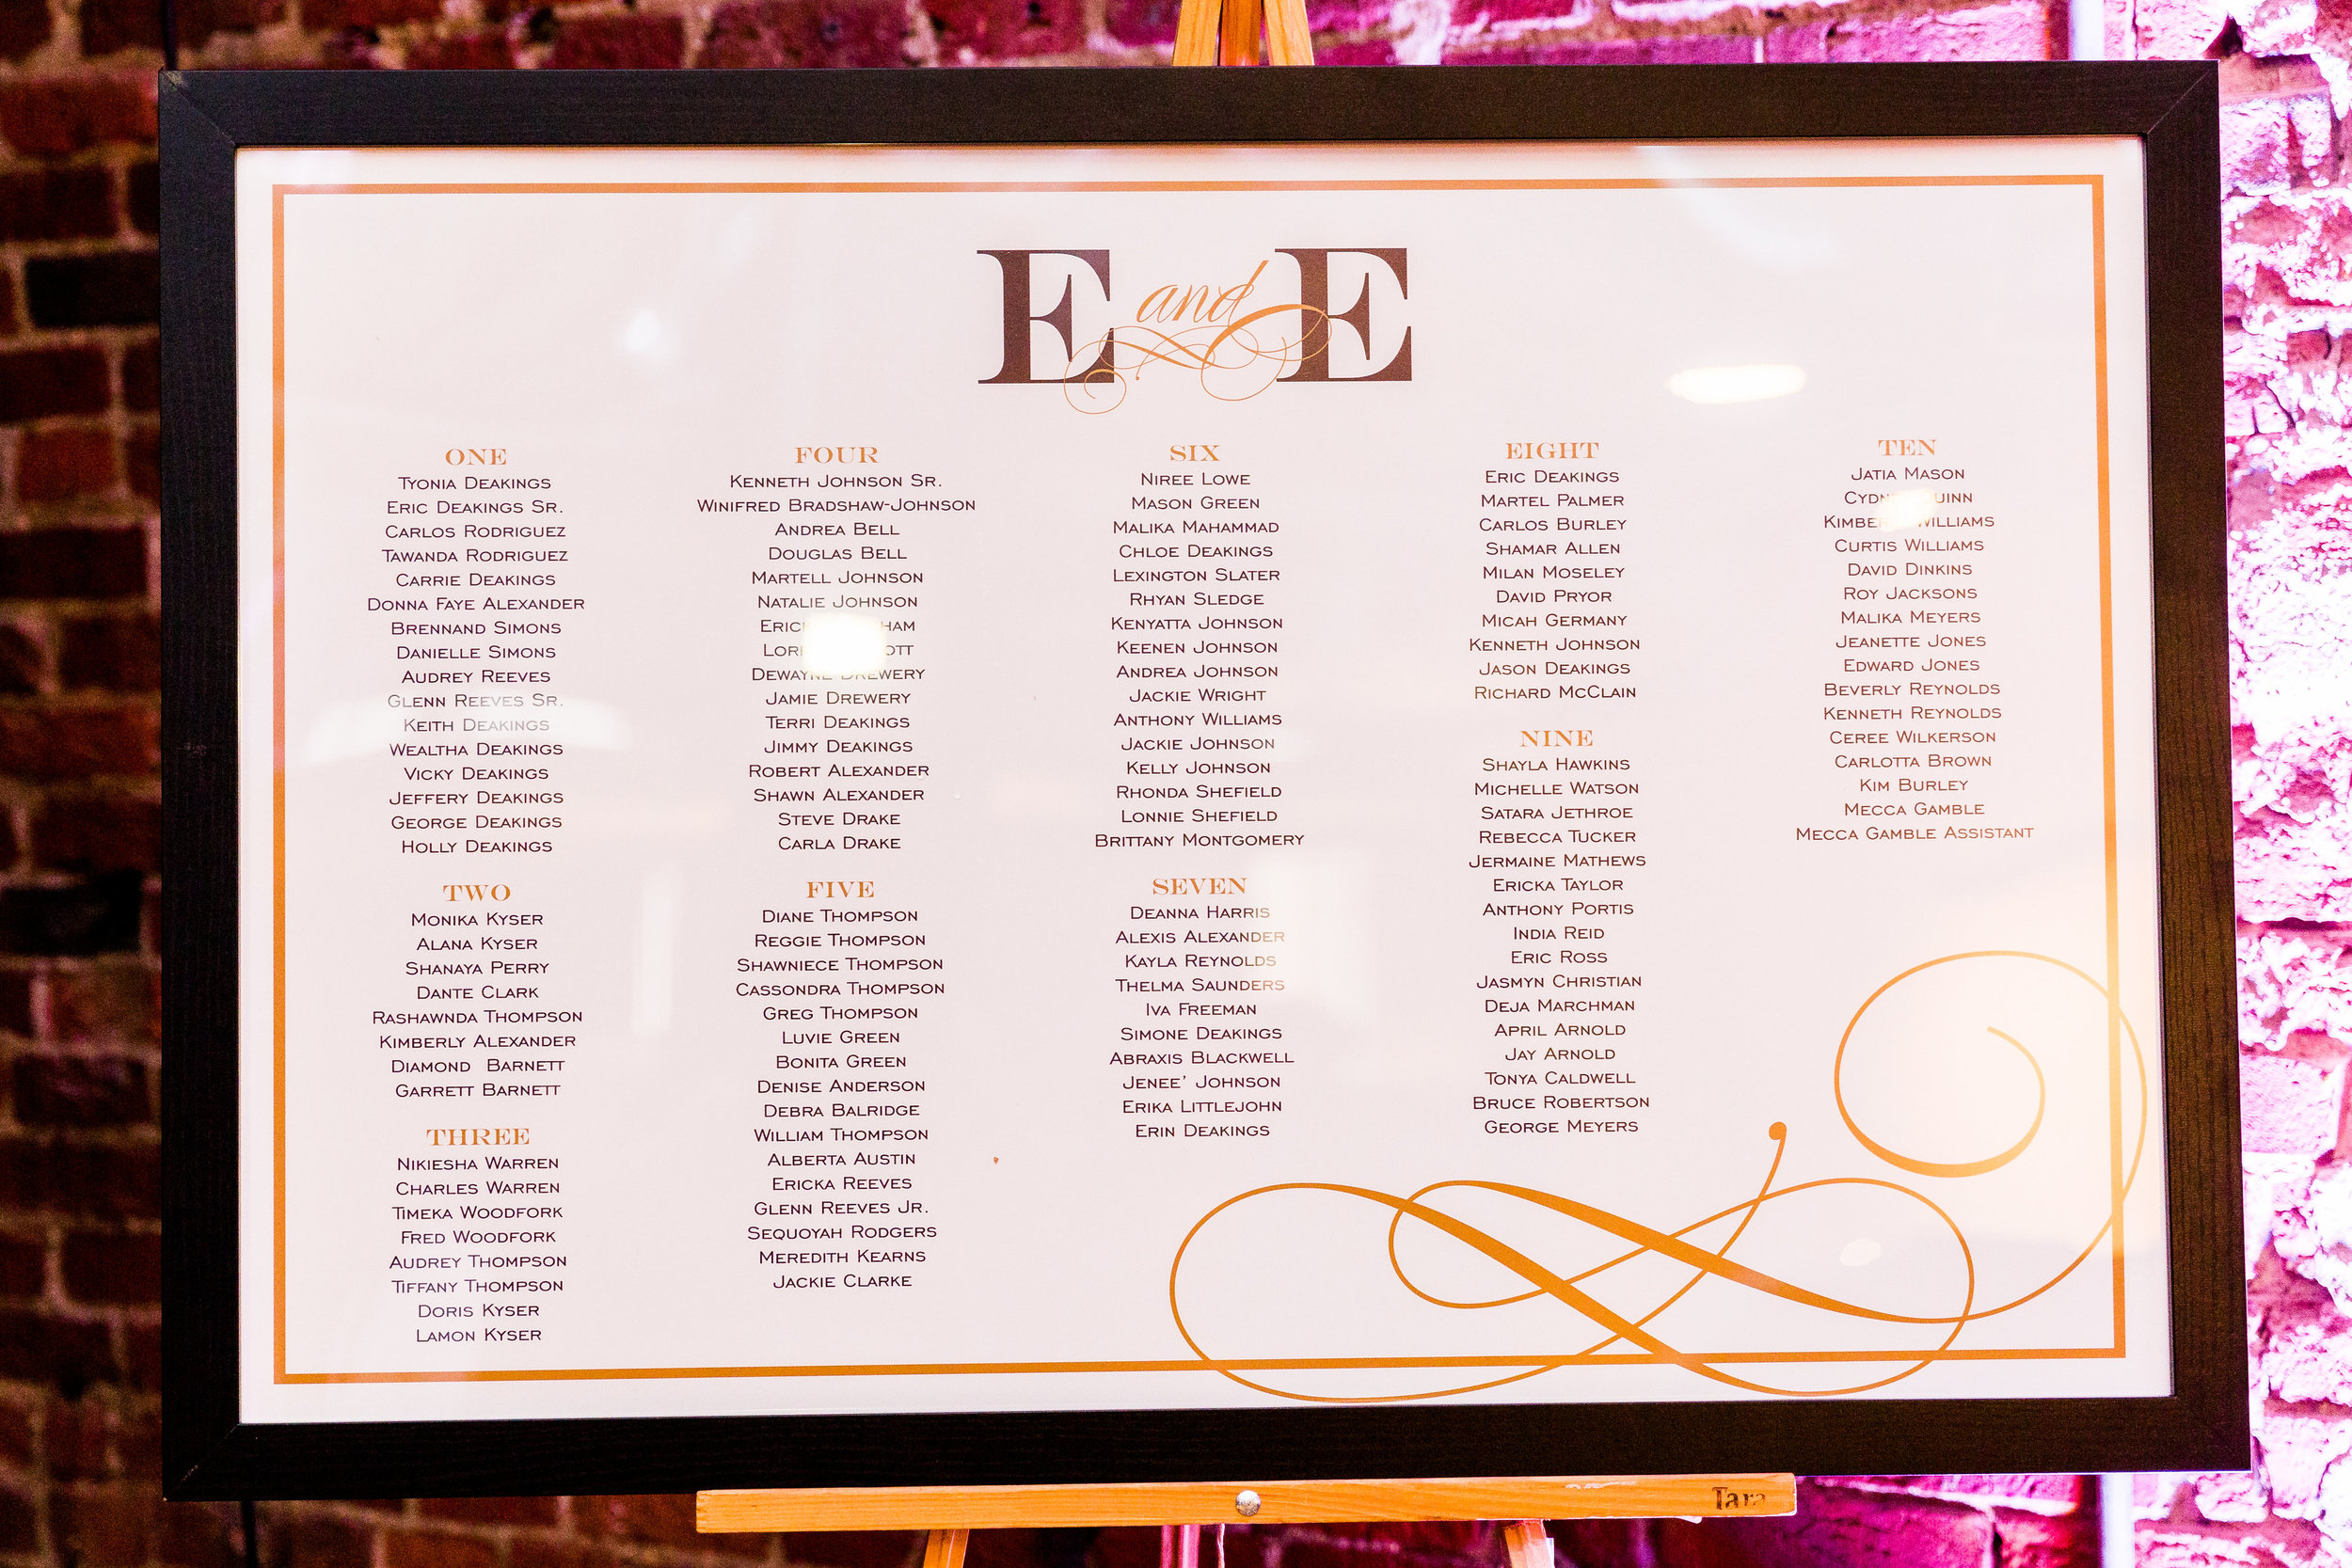 E and E
ONE
Tyonia Deakings
Eric Deakings Sr.
Carlos Rodriguez
Tawanda Rodriguez
Carrie Deakings
Donna Faye Alexander
Brennand Simons
Danielle Simons
Audrey Reeves
Glenn Reeves Sr.
Keith Deakings
Wealtha Deakings
Vicky Deakings
Jeffery Deakings
George Deakings
Holly Deakings
TWO
Monika Kyser
Alana Kyser
Shanaya Perry
Dante Clark
Rashawnda Thompson
Kimberly Alexander
Diamond Barnett
Garrett Barnett
THREE
Nikiesha Warren
Charles Warren
Timeka Woodfork
Fred Woodfork
Audrey Thompson
Tiffany Thompson
Doris Kyser
Lamon Kyser
FOUR
Kenneth Johnson Sr.
Winifred Bradshaw-Johnson
Andrea Bell
Douglas Bell
Martell Johnson
Natalie Johnson
Dewayne Drewery
Jamie Drewery
Terri Deakings
Jimmy Deakings
Robert Alexander
Shawn Alexander
Steve Drake
Carla Drake
FIVE
Diane Thompson
Reggie Thompson
Shawniece Thompson
Cassondra Thompson
Greg Thompson
Luvie Green
Bonita Green
Denise Anderson
Debra Balridge
William Thompson
Alberta Austin
Ericka Reeves
Glenn Reeves Jr.
Sequoyah Rodgers
Meredith Kearns
Jackie Clarke
SIX
Niree Lowe
Mason Green
Malika Mahammad
Chloe Deakings
Lexington Slater
Rhyan Sledge
Kenyatta Johnson
Keenen Johnson
Andrea Johnson
Jackie Wright
Anthony Williams
Jackie Johnson
Kelly Johnson
Rhonda Shefield
Lonnie Shefield
Brittany Montgomery
SEVEN
Deanna Harris
Alexis Alexander
Kayla Reynolds
Thelma Saunders
Iva Freeman
Simone Deakings
Abraxis Blackwell
Jenee' Johnson
Erika Littlejohn
Erin Deakings
EIGHT
Eric Deakings
Martel Palmer
Carlos Burley
Shamar Allen
Milan Moseley
David Pryor
Micah Germany
Kenneth Johnson
Jason Deakings
Richard McClain
NINE
Shayla Hawkins
Michelle Watson
Satara Jethroe
Rebecca Tucker
Jermaine Mathews
Ericka Taylor
Anthony Portis
India Reid
Eric Ross
Jasmyn Christian
Deja Marchman
April Arnold
Jay Arnold
Tonya Caldwell
Bruce Robertson
George Meyers
TEN
Jatia Mason
Williams
Curtis Williams
David Dinkins
Roy Jacksons
Malika Meyers
Jeanette Jones
Edward Jones
Beverly Reynolds
Kenneth Reynolds
Ceree Wilkerson
Carlotta Brown
Kim Burley
Mecca Gamble
Mecca Gamble Assistant
Tara